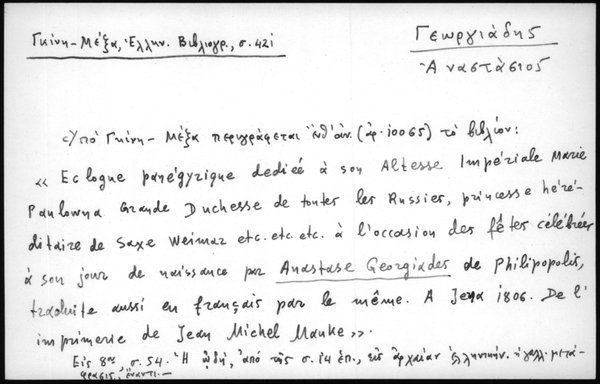 Γκίνη - Μέξα, Ἑλλην. Βιβλιογρ., σ. 421
Γεωργιάδης
Ἀναστάσιος
Ὑπό Γκίνη - Μέξα περιγράφεται ἐνθ' ἀν. (ἀρ. 10065) τὸ βιβλίον:
« Eclogue panégyrique dediéé à son Altesse Impériale Marie
Paulowna Grande Duchesse de toutes les Russies, princesse héré-
ditaire de Saxe Weimar etc. etc. etc. à l'occasion des fêtes célébrées
à son jour de naissance par Anastase Georgiades de Philipopolis,
traduite aussi en français par le même. A Jena 1806. De l'
imprimerie de Jean Michel Mauke ».
Εἰς 8ον, σ. 54. Ἡ ᾠδή, ἀπό τῆς σ. 14 ἑπ., εἰς ἀρχαίαν ἑλληνικήν. ἡ γαλλ. μετά-
φρασις, ἔναντι. —